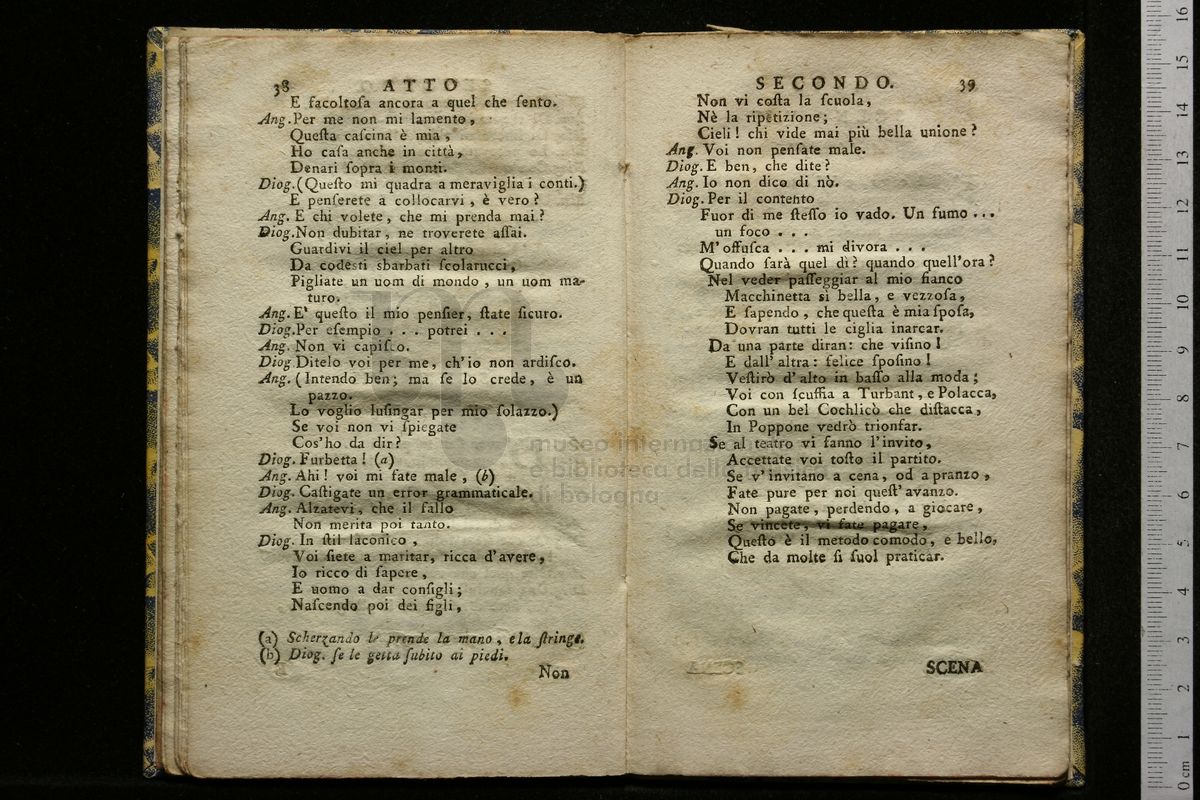 38 ATTO
E facoltoſa ancora a quel che ſento.
Ang. Per me non mi lamento,
Queſta caſcina è mia,
Ho caſa anche in città,
Denari ſopra i monti.
Diog. (Queſto mi quadra a meraviglia i conti.)
E penſerete a collocarvi, è vero?
Ang. E chi volete, che mi prenda mai?
Diog. Non dubitar, ne troverete aſſai.
Guardivi il ciel per altro
Da codeſti sbarbati ſcolarucci,
Pigliate un uom di mondo, un uom ma-
turo.
Ang. E' queſto il mio penſier, ſtate ſicuro.
Diog. Per eſempio . . . potrei . . .
Ang. Non vi capiſco.
Diog. Ditelo voi per me, ch'io non ardiſco.
Ang. (Intendo ben; ma ſe lo crede, è un
pazzo.
Lo voglio luſingar per mio ſolazzo.)
Se voi non vi ſpiegate
Cos'ho da dir?
Diog. Furbetta! (a)
Ang. Ahi! voi mi fate male, (b)
Diog. Caſtigate un error grammaticale.
Ang. Alzatevi, che il fallo
Non merita poi tanto.
Diog. In ſtil laconico,
Voi ſiete a maritar, ricca d'avere,
Io ricco di ſapere,
E uomo a dar conſigli;
Naſcendo poi dei figli,
(a) Scherzando le prende la mano, e la ſtringe.
(b) Diog. ſe le getta ſubito ai piedi.
Non
SECONDO. 39
Non vi coſta la ſcuola,
Nè la ripetizione;
Cieli! chi vide mai più bella unione?
Ang. Voi non penſate male.
Diog. E ben, che dite?
Ang. Io non dico di nò.
Diog. Per il contento
Fuor di me ſteſſo io vado. Un fumo ...
un foco . . .
M'offuſca . . . mi divora . . .
Quando ſarà quel dì? quando quell'ora?
Nel veder paſſeggiar al mio fianco
Macchinetta sì bella, e vezzoſa,
E ſapendo, che queſta è mia ſpoſa,
Dovran tutti le ciglia inarcar.
Da una parte diran: che viſino!
E dall'altra: felice ſpoſino!
Veſtirò d'alto in baſſo alla moda;
Voi con ſcuffia a Turbant, e Polacca,
Con un bel Cochlicò che diſtacca,
In Poppone vedrò trionfar.
Se al teatro vi fanno l'invito,
Accettate voi toſto il partito.
Se v'invitano a cena, od a pranzo,
Fate pure per noi queſt'avanzo.
Non pagate, perdendo, a giocare,
Se vincete, vi fate pagare,
Queſto è il metodo comodo, e bello,
Che da molte ſi ſuol praticar.
SCENA
museo interna
e biblioteca dell
di bologna
0 cm 1 2 3 4 5 6 7 8 9 10 11 12 13 14 15 16